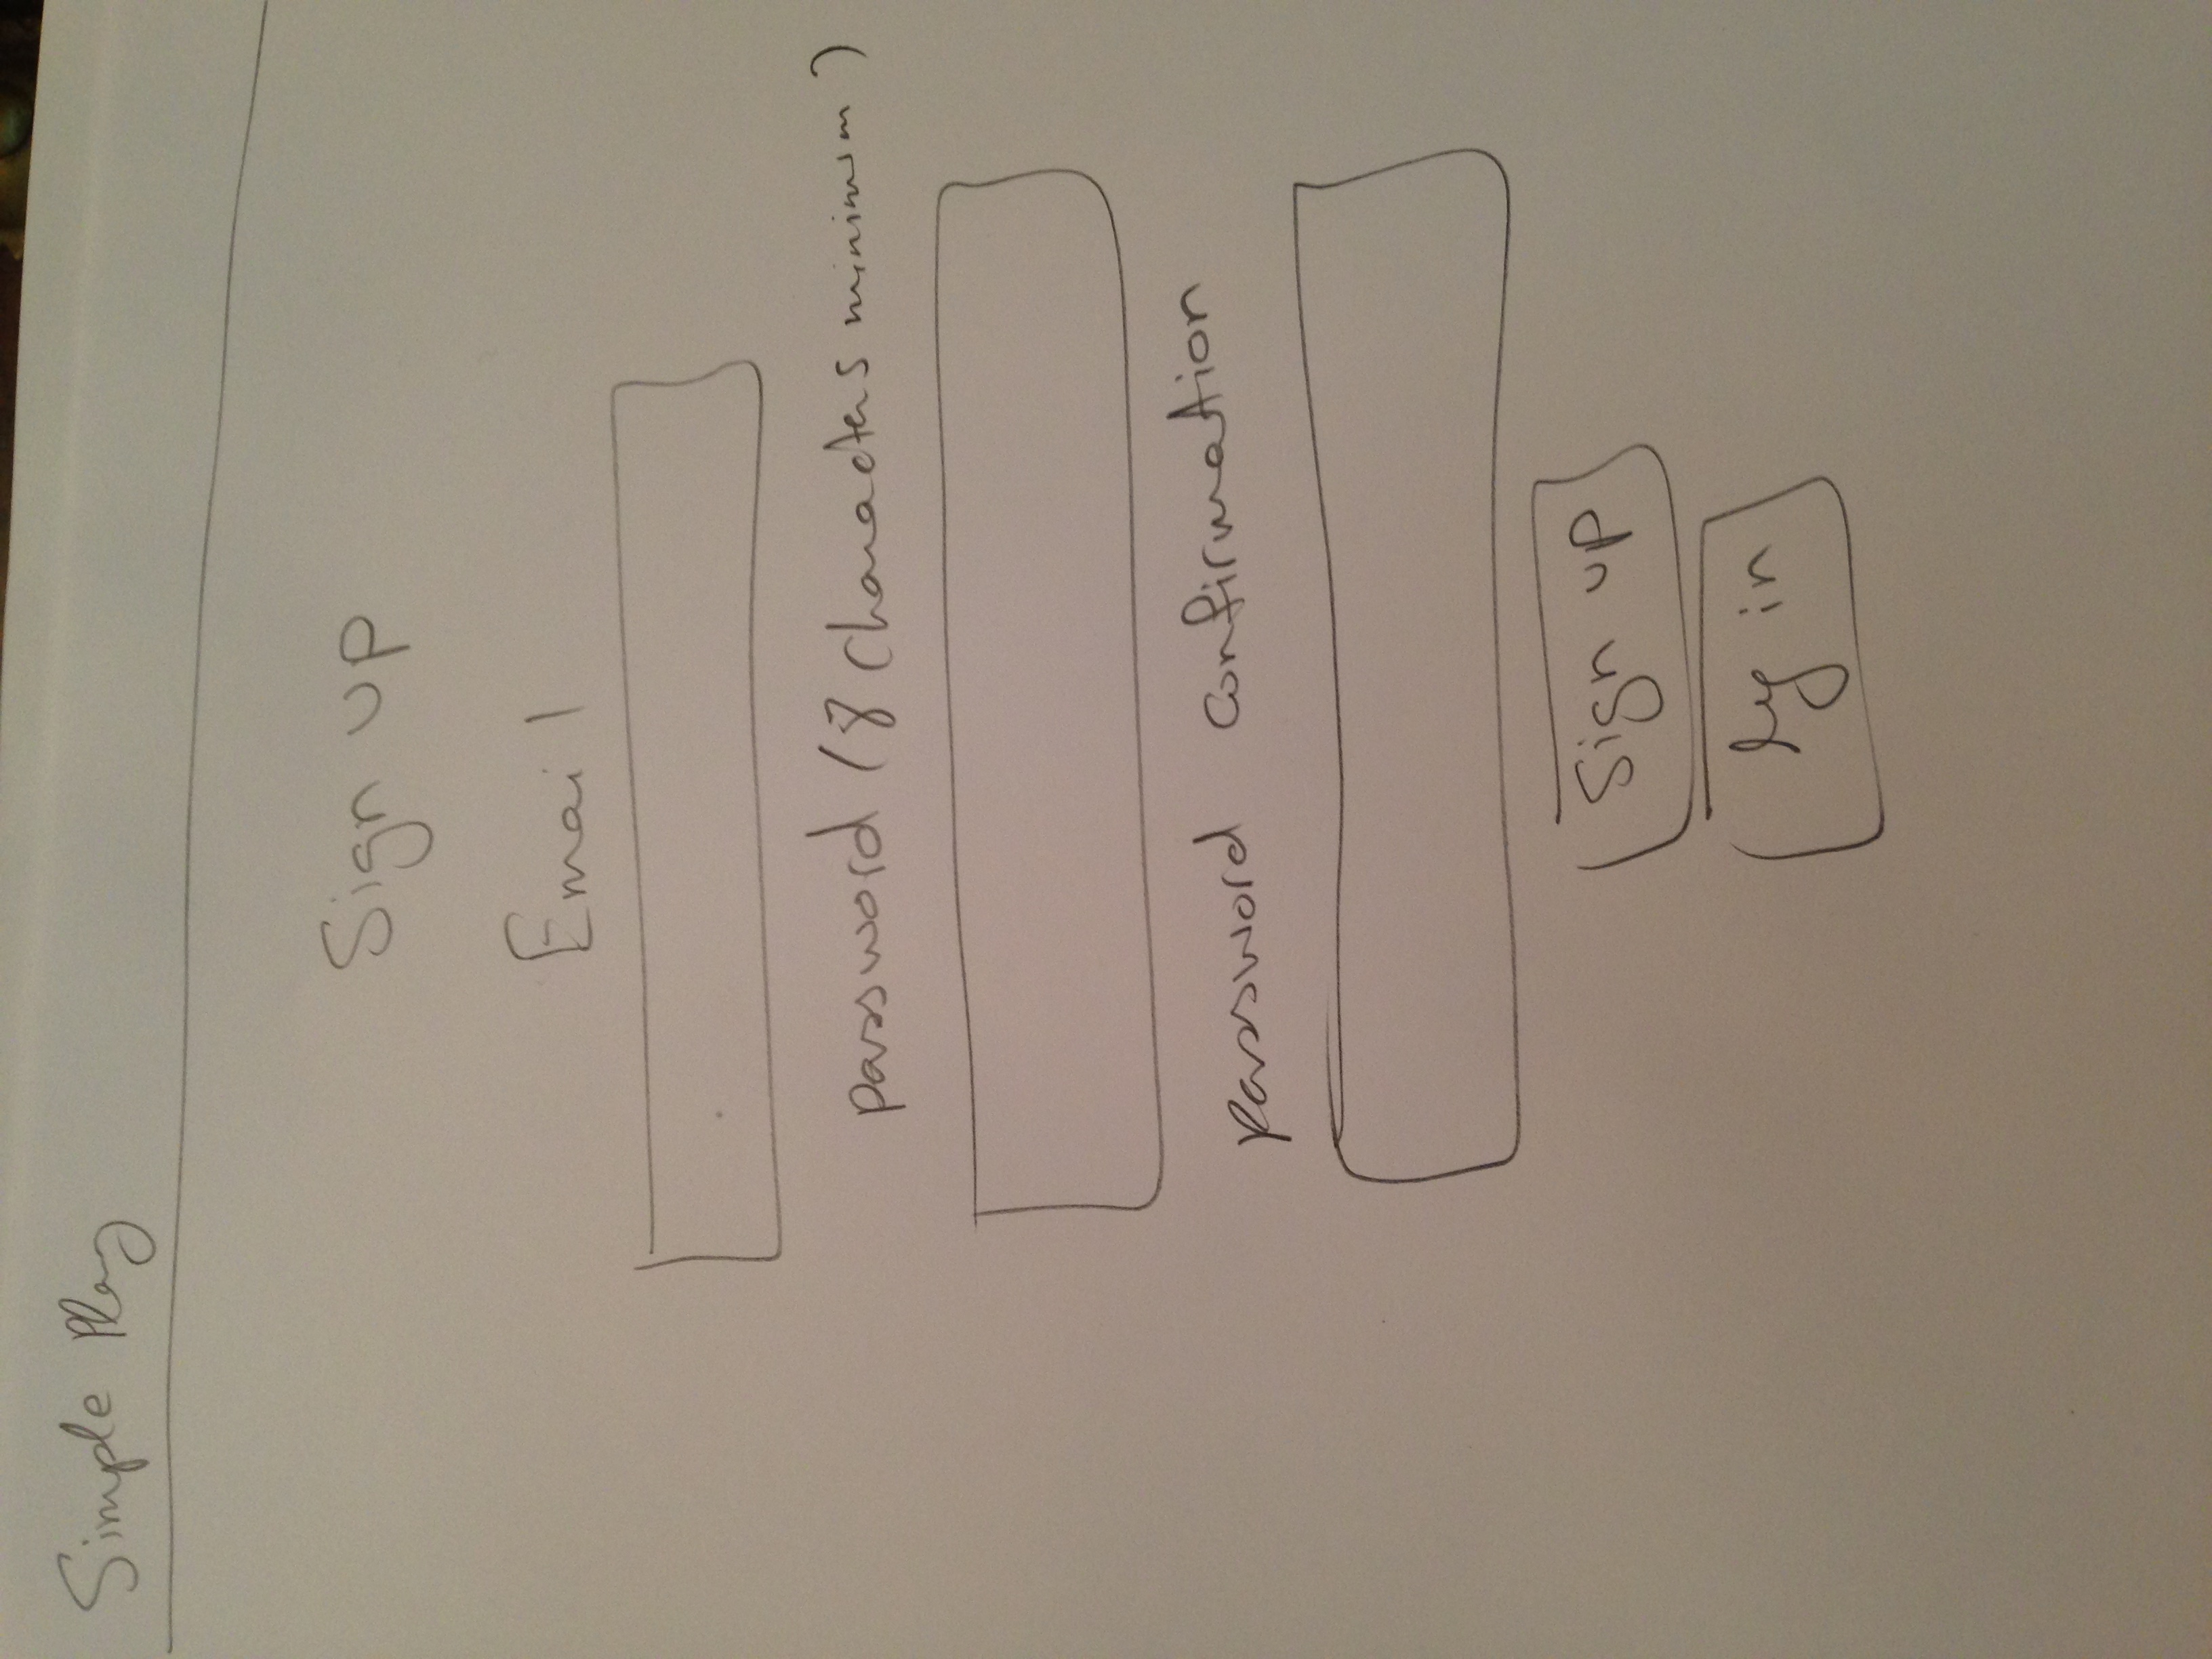 Simple Play
Sign up
Email
password (8 characters minimum)
password confirmation
Sign up
log in